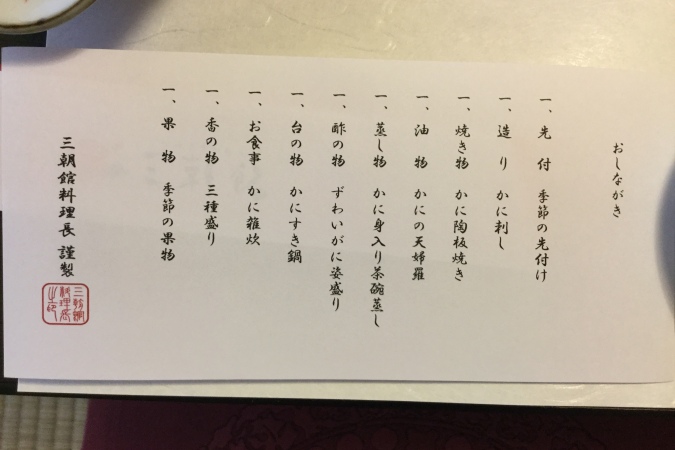 おしながき
一、先付 季節の先付け
一、造り かに刺し
一、焼き物 かに陶板焼き
一、油物 かにの天婦羅
一、蒸し物 かに身入り茶碗蒸し
一、酢の物 ずわいがに姿盛り
一、台の物 かにすき鍋
一、お食事 かに雑炊
一、香の物 三種盛り
一、果物 季節の果物
三朝館料理長 謹製